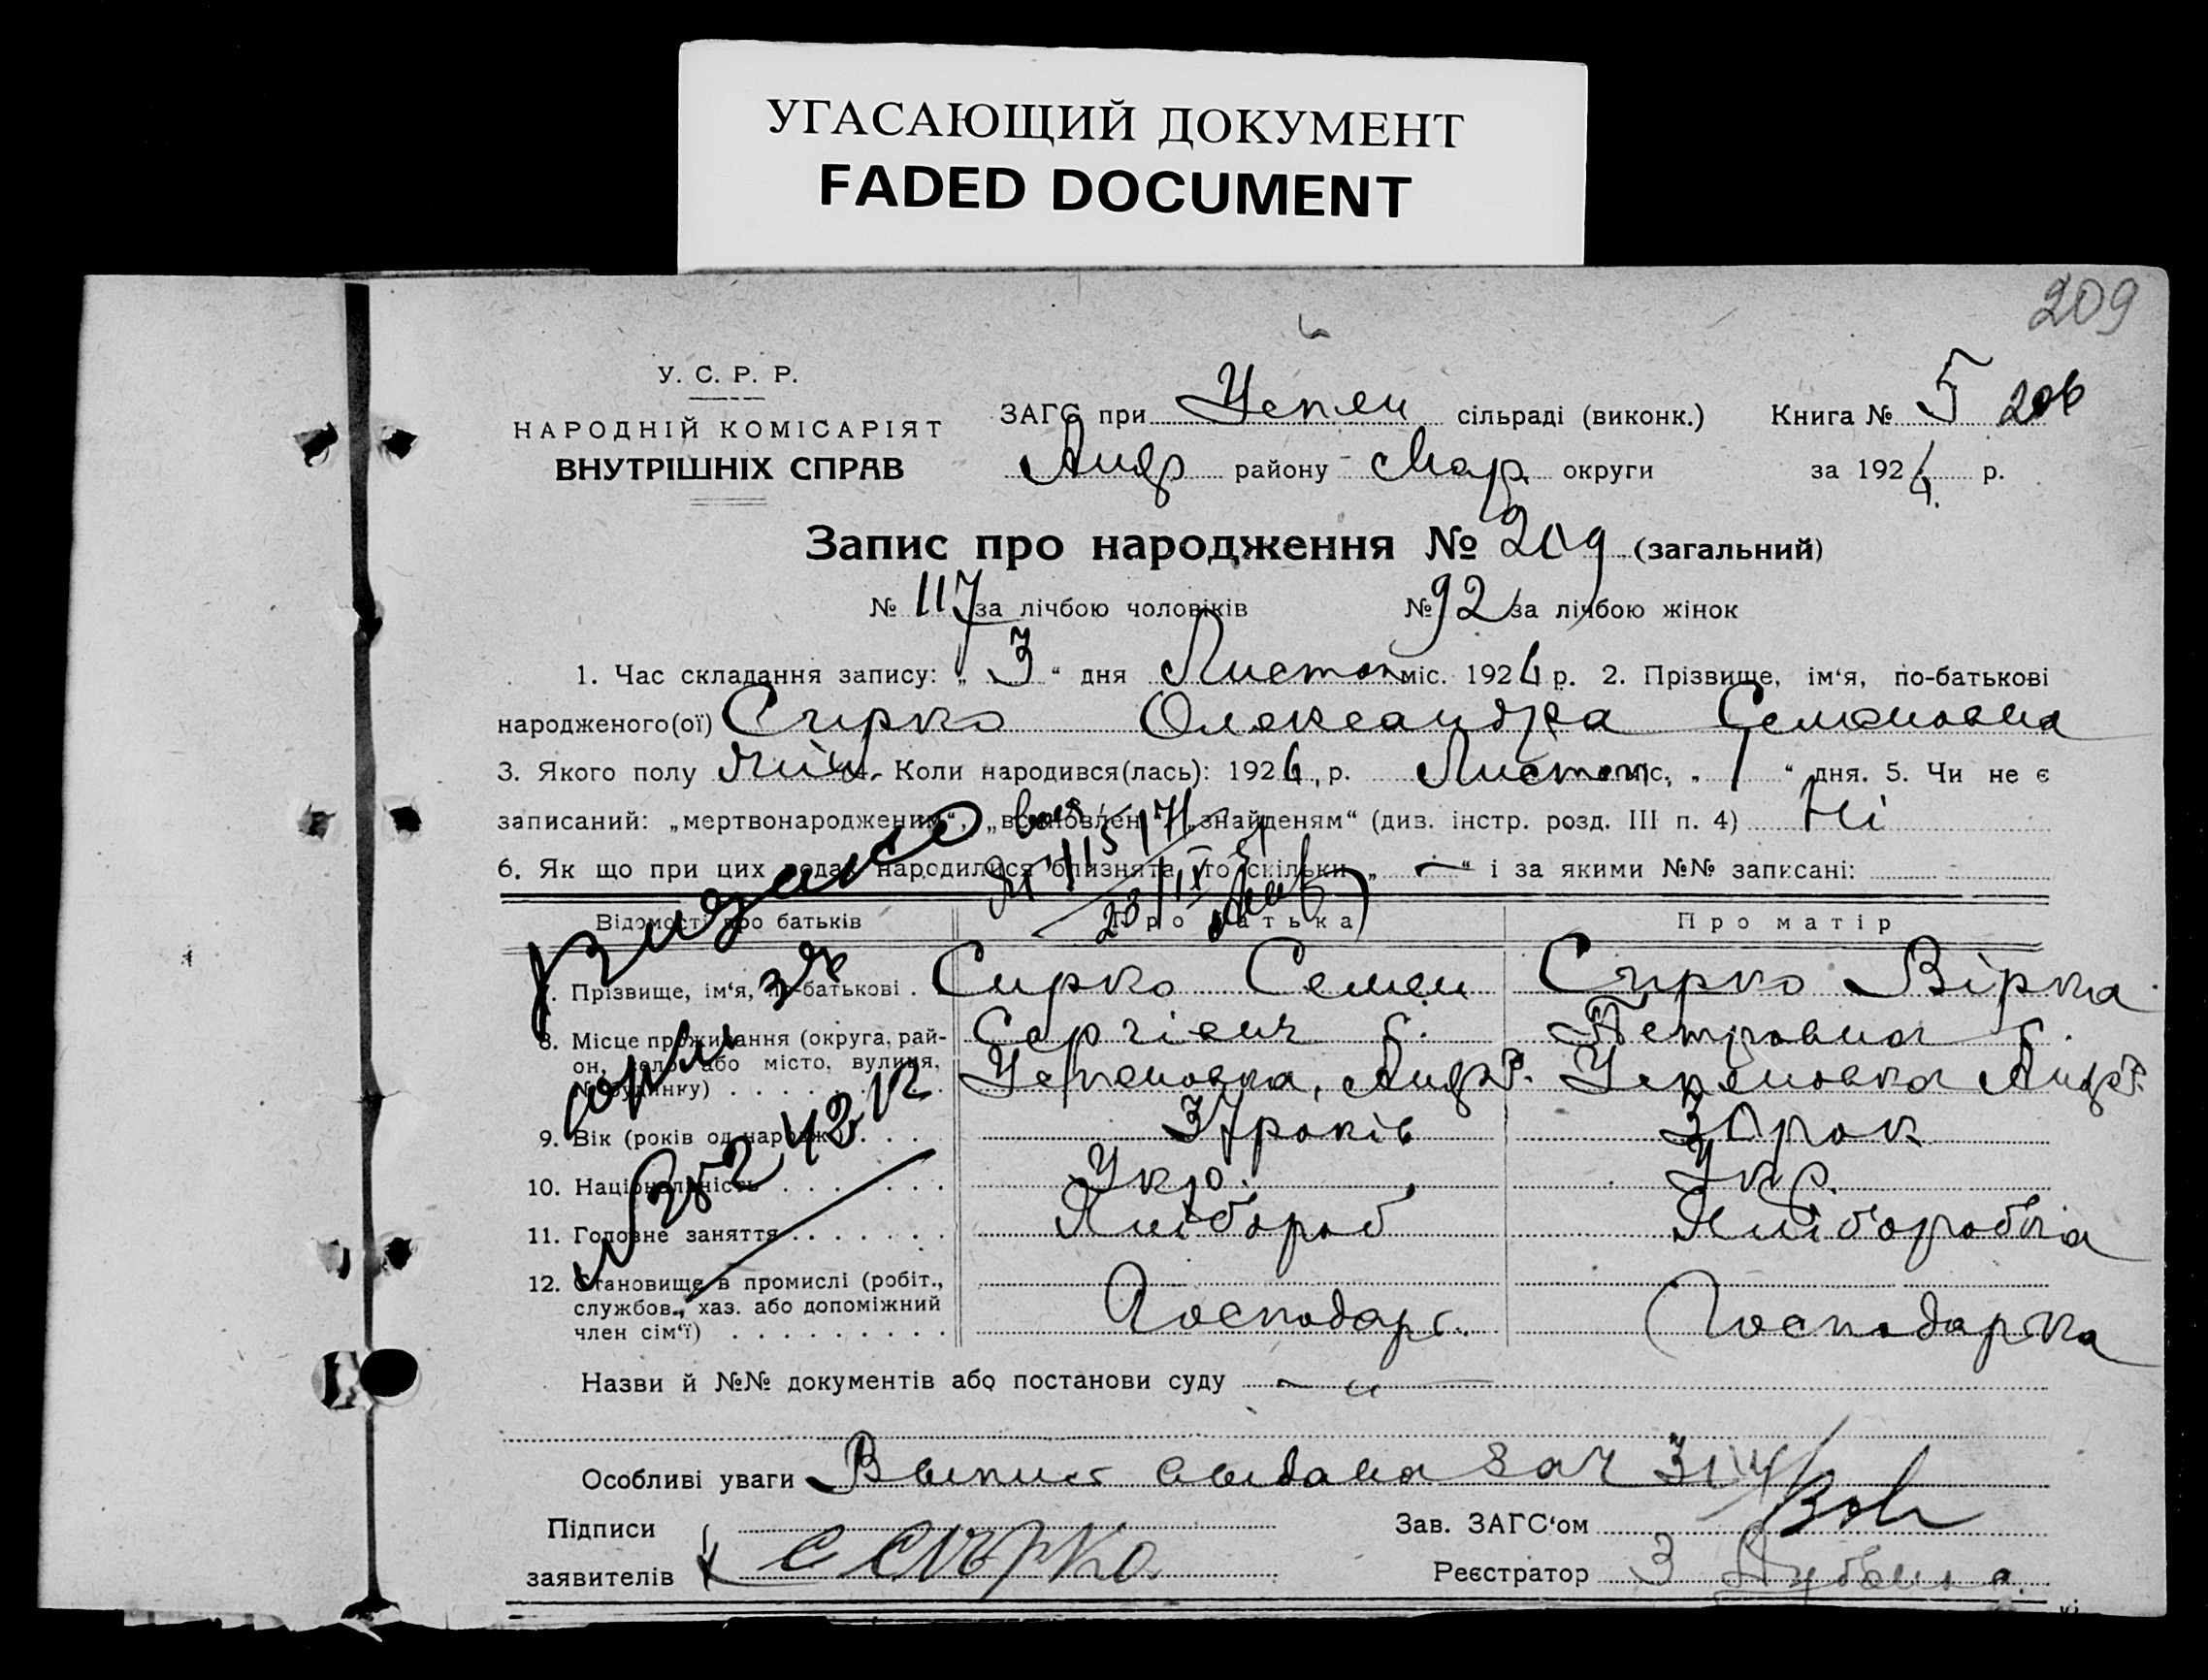 УГАСАЮЩИЙ ДОКУМЕНТ
FADED DOCUMENT
209
У. С. Р. Р.
НАРОДНІЙ КОМІСАРІЯТ
ВНУТРІШНІХ СПРАВ
ЗАГС при Успен сільраді (виконк.) Книга № 5 206
Андр району Мар округи за 1926 р.
Запис про народження № 209 (загальний)
№ 117 за лічбою чоловіків № 92 за лічбою жінок
1. Час складання запису: „ 3 “ дня Листоп міс. 1926 р. 2. Прізвище, ім‘я, по-батькові
народженого(ої) Сирко Олександра Семеновна
3. Якого полу жін. Коли народився(лась): 1926, р. Листоп міс, „ 1 “ дня. 5. Чи не є
записаний: „мертвонародженим“, „встановлен „знайденям“ (див. інстр. розд. III п. 4) Ні
6. Як що при цих родах народилися близнята, то скільки „ — “ і за якими №№ записані:
Відомості про батьків Про батька Про матір
7. Прізвище, ім‘я, по-батькові . Сирко Семен Сирко Вірка
8. Місце проживання (округа, рай- Сергієич с. Петровна с.
он, село або місто, вулиця, Успеновка, Андр. Успеновка Андр.
№ будинку)
9. Вік (років од народж.) 37 років 30 рок
10. Національність Укр. Укр.
11. Головне заняття Хлібороб Хліборобка
12. Становище в промислі (робіт.,
службов., хаз. або допоміжний Господарь Господарка
член сім‘ї)
Назви й №№ документів або постанови суду — " —
Особливі уваги Выпись выдана
Підписи Зав. ЗАГС‘ом
заявителів С Сирко Реєстратор З